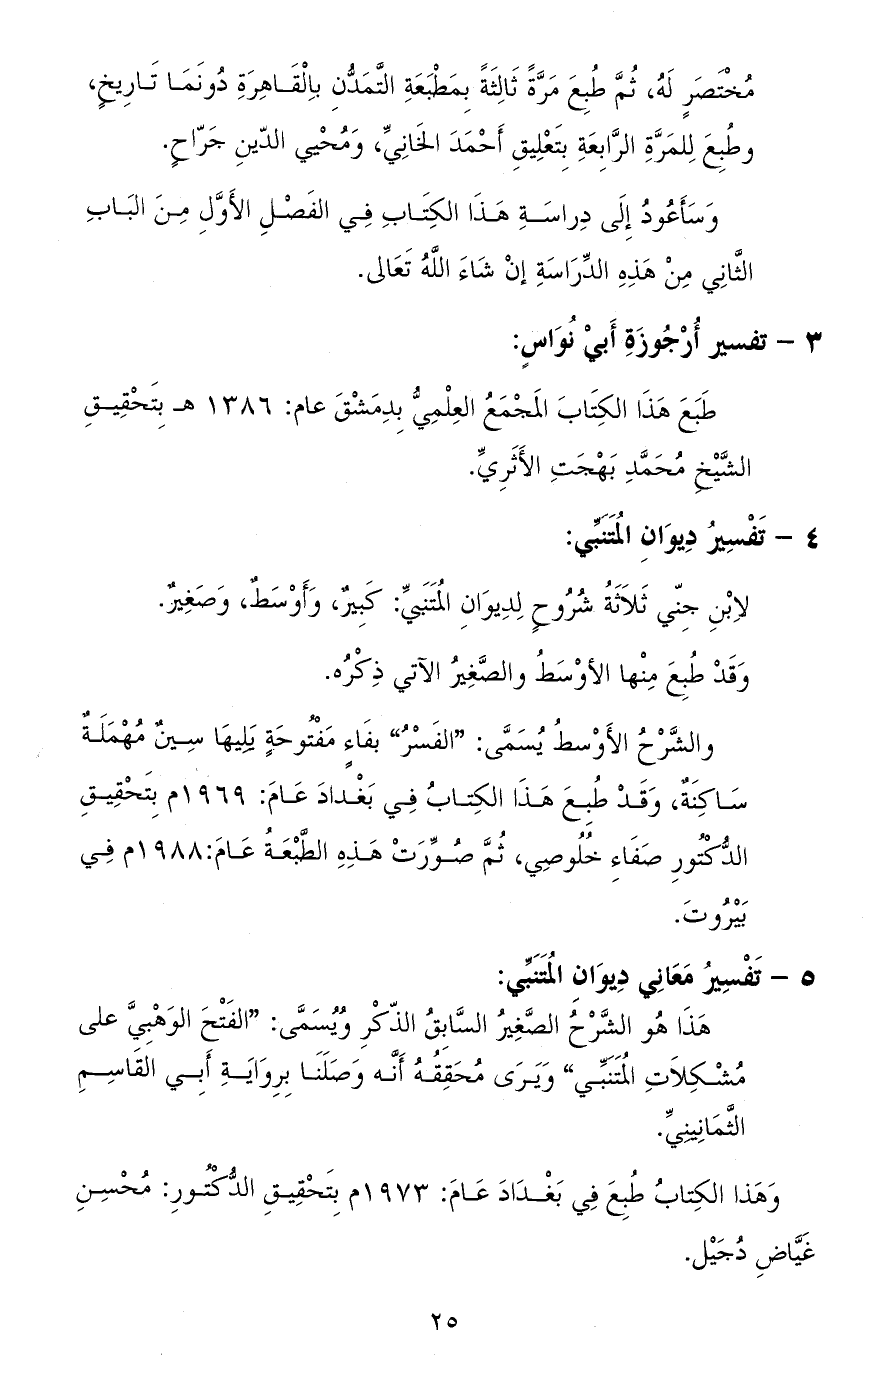 مُخْتَصَرٍ لَهُ، ثُمَّ طُبِعَ مَرَّةً ثَالِثَةً بِمَطْبَعَةِ التَّمَدُّنِ بِالْقَاهِرَةِ دُونَمَا تَارِيخٍ،
وطُبِعَ لِلمَرَّةِ الرَّابِعَةِ بِتَعْلِيقِ أَحْمَدَ الخَانِيِّ، وَمُحْيي الدِّينِ جَرَّاحٍ.
وَسَأَعُودُ إِلَى دِرَاسَةِ هَذَا الكِتَابِ فِي الفَصْلِ الأَوَّلِ مِنَ البَابِ
الثَّانِي مِنْ هَذِهِ الدِّرَاسَةِ إنْ شَاءَ اللَّهُ تَعَالى.
٣ - تفسير أُرْجُوزَةِ أَبيْ نُوَاسٍ:
طَبَعَ هَذَا الكِتَابَ المَجْمَعُ العِلْمِيُّ بِدِمَشْقَ عام: ١٣٨٦ هـ بِتَحْقِيقِ
الشَّيْخِ مُحَمَّدِ بَهْجَتِ الأَثَرِيِّ.
٤ - تَفْسِيرُ دِيوَانِ المُتَنَبِّي:
لاِبْنِ جِنّي ثَلاَثَةُ شُرُوحٍ لِدِيوَانِ المُتَنَبيِّ: كَبِيرٌ، وَأَوْسَطٌ، وَصَغِيرٌ.
وَقَدْ طُبِعَ مِنْها الأوْسَطُ والصَّغِيرُ الآتي ذِكْرُه.
والشَّرْحُ الأَوْسطُ يُسَمَّى: ”الفَسْرُ“ بفَاءٍ مَفْتُوحَةٍ يَلِيهَا سِينٌ مُهْمَلَةٌ
سَاكِنَةٌ، وَقَدْ طُبِعَ هَذَا الكِتابُ فِي بَغْدادَ عَامَ: ١٩٦٩م بِتَحْقِيقِ
الدُّكْتُورِ صَفَاءِ خُلُوصِي، ثُمَّ صُوِّرَتْ هَذِهِ الطَّبْعَةُ عَامَ:١٩٨٨م فِي
بَيْرُوتَ.
٥ - تَفْسِيرُ مَعَانِي دِيوَانِ المُتَنَبِّي:
هَذَا هُو الشَّرْحُ الصَّغِيرُ السَّابِقُ الذِّكْرِ وَيُسَمَّى: ”الفَتْحَ الوَهْبِيَّ على
مُشْكِلَاتِ المُتَنَبِّي“ وَيَرَى مُحَقِّقُهُ أَنَّه وَصَلَنَا بِرِوَايَةِ أَبي القَاسِمِ
الثَّمَانِينِيِّ.
وَهَذا الكِتَابُ طُبِعَ فِي بَغْدَادَ عَامَ: ١٩٧٣م بِتَحْقِيقِ الدُّكْتُورِ: مُحْسِنِ
غَيَّاضِ دُجَيْل.
٢٥